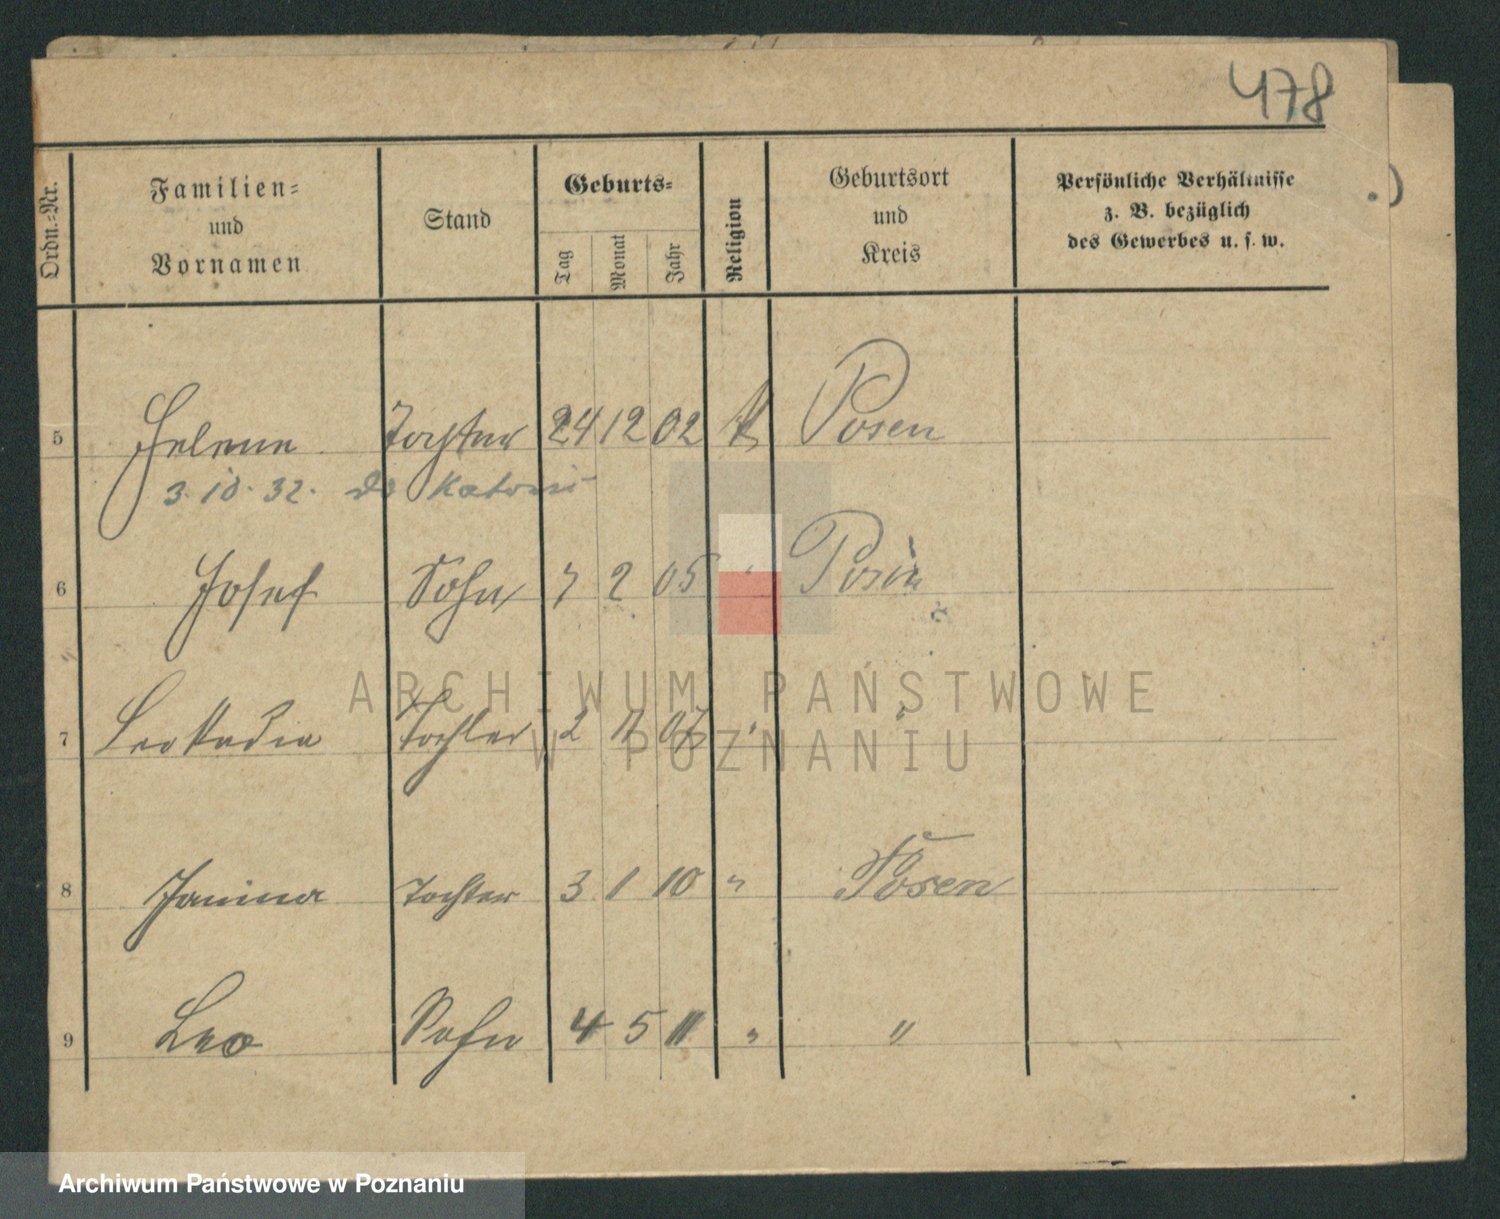 478
Ordn.-Nr.
Familien-
und
Vornamen
Stand
Geburts-
Tag
Monat
Jahr
Religion
Geburtsort
und
Kreis
Persönliche Verhältnisse
z. B. bezüglich
des Gewerbes u. s. w.
5 Helene Tochter 24 12 02 k Posen
3.10.32.
6 Josef Sohn 7 2 05 " Posen
ARCHIWUM PAŃSTWOWE
7 Leokadia Tochter 2 11 07 " "
W POZNANIU
8 Janina Tochter 3 1 10 " Posen
9 Leo Sohn 4 5 11 " "
Archiwum Państwowe w Poznaniu